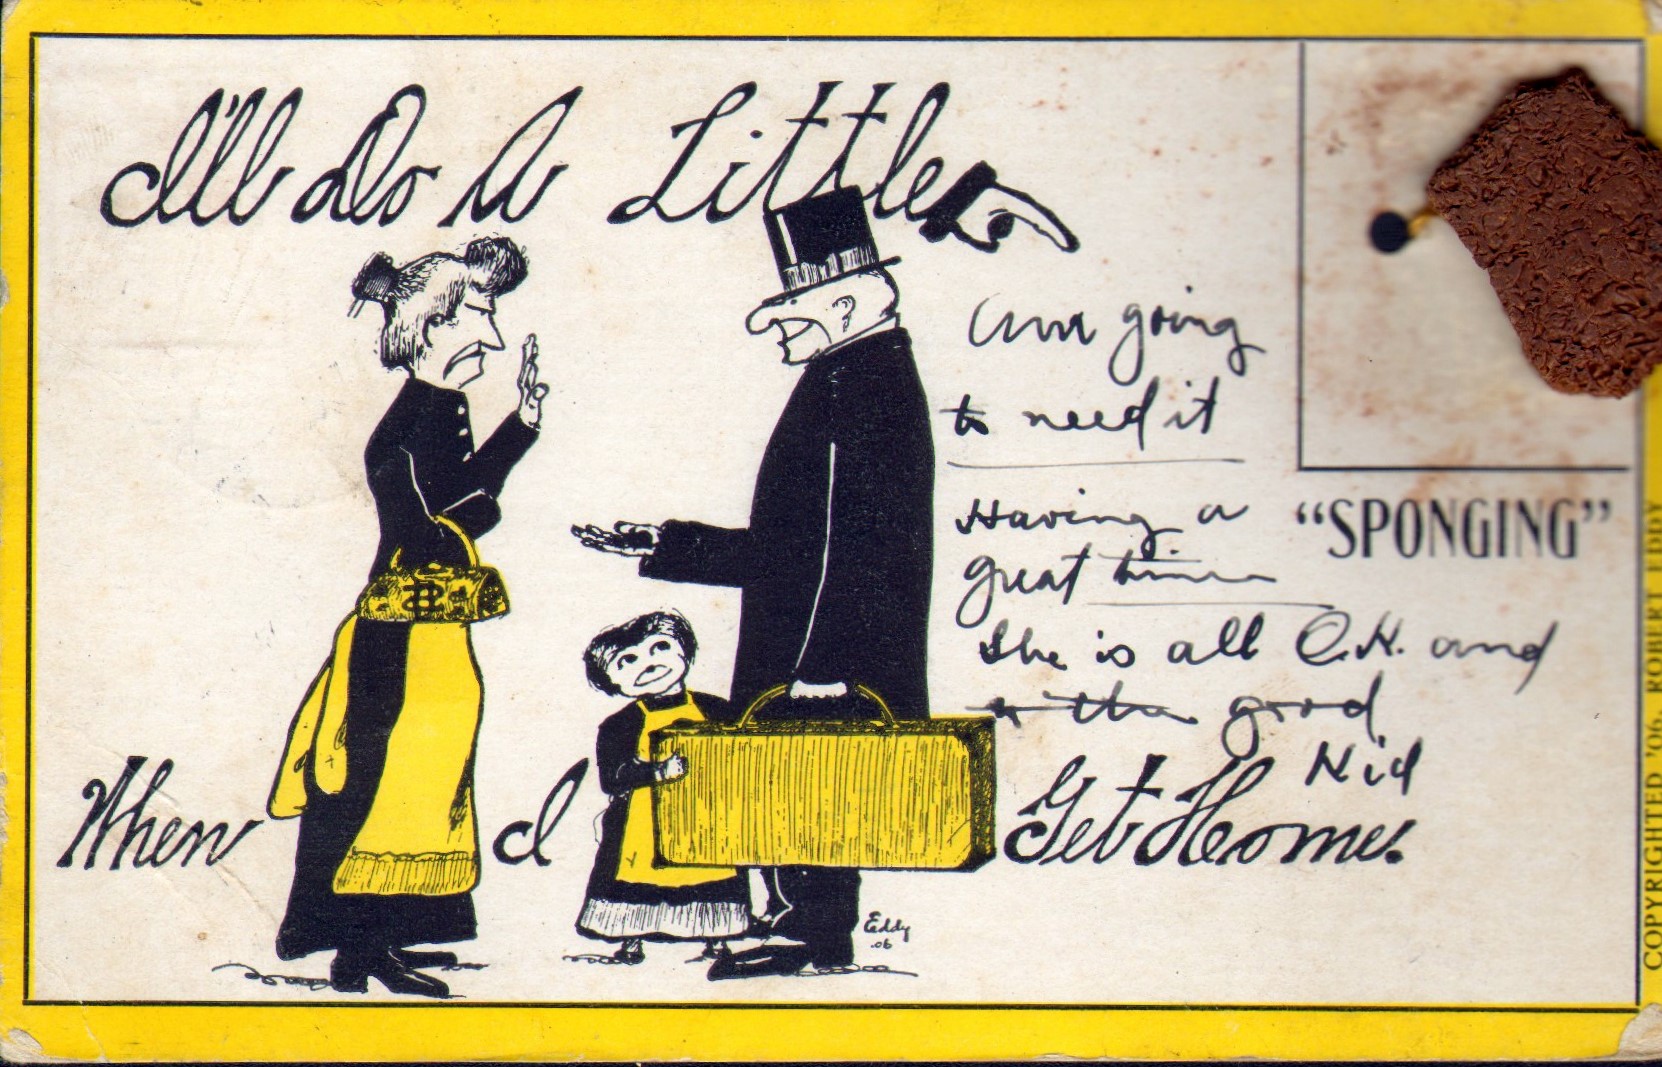 I'll Do A Little
Am going
to need it
Having a
great time
She is all O.K. and
good
Nid
"SPONGING"
When I Get Home.
Eddy
.06
COPYRIGHTED '06. ROBERT EDDY